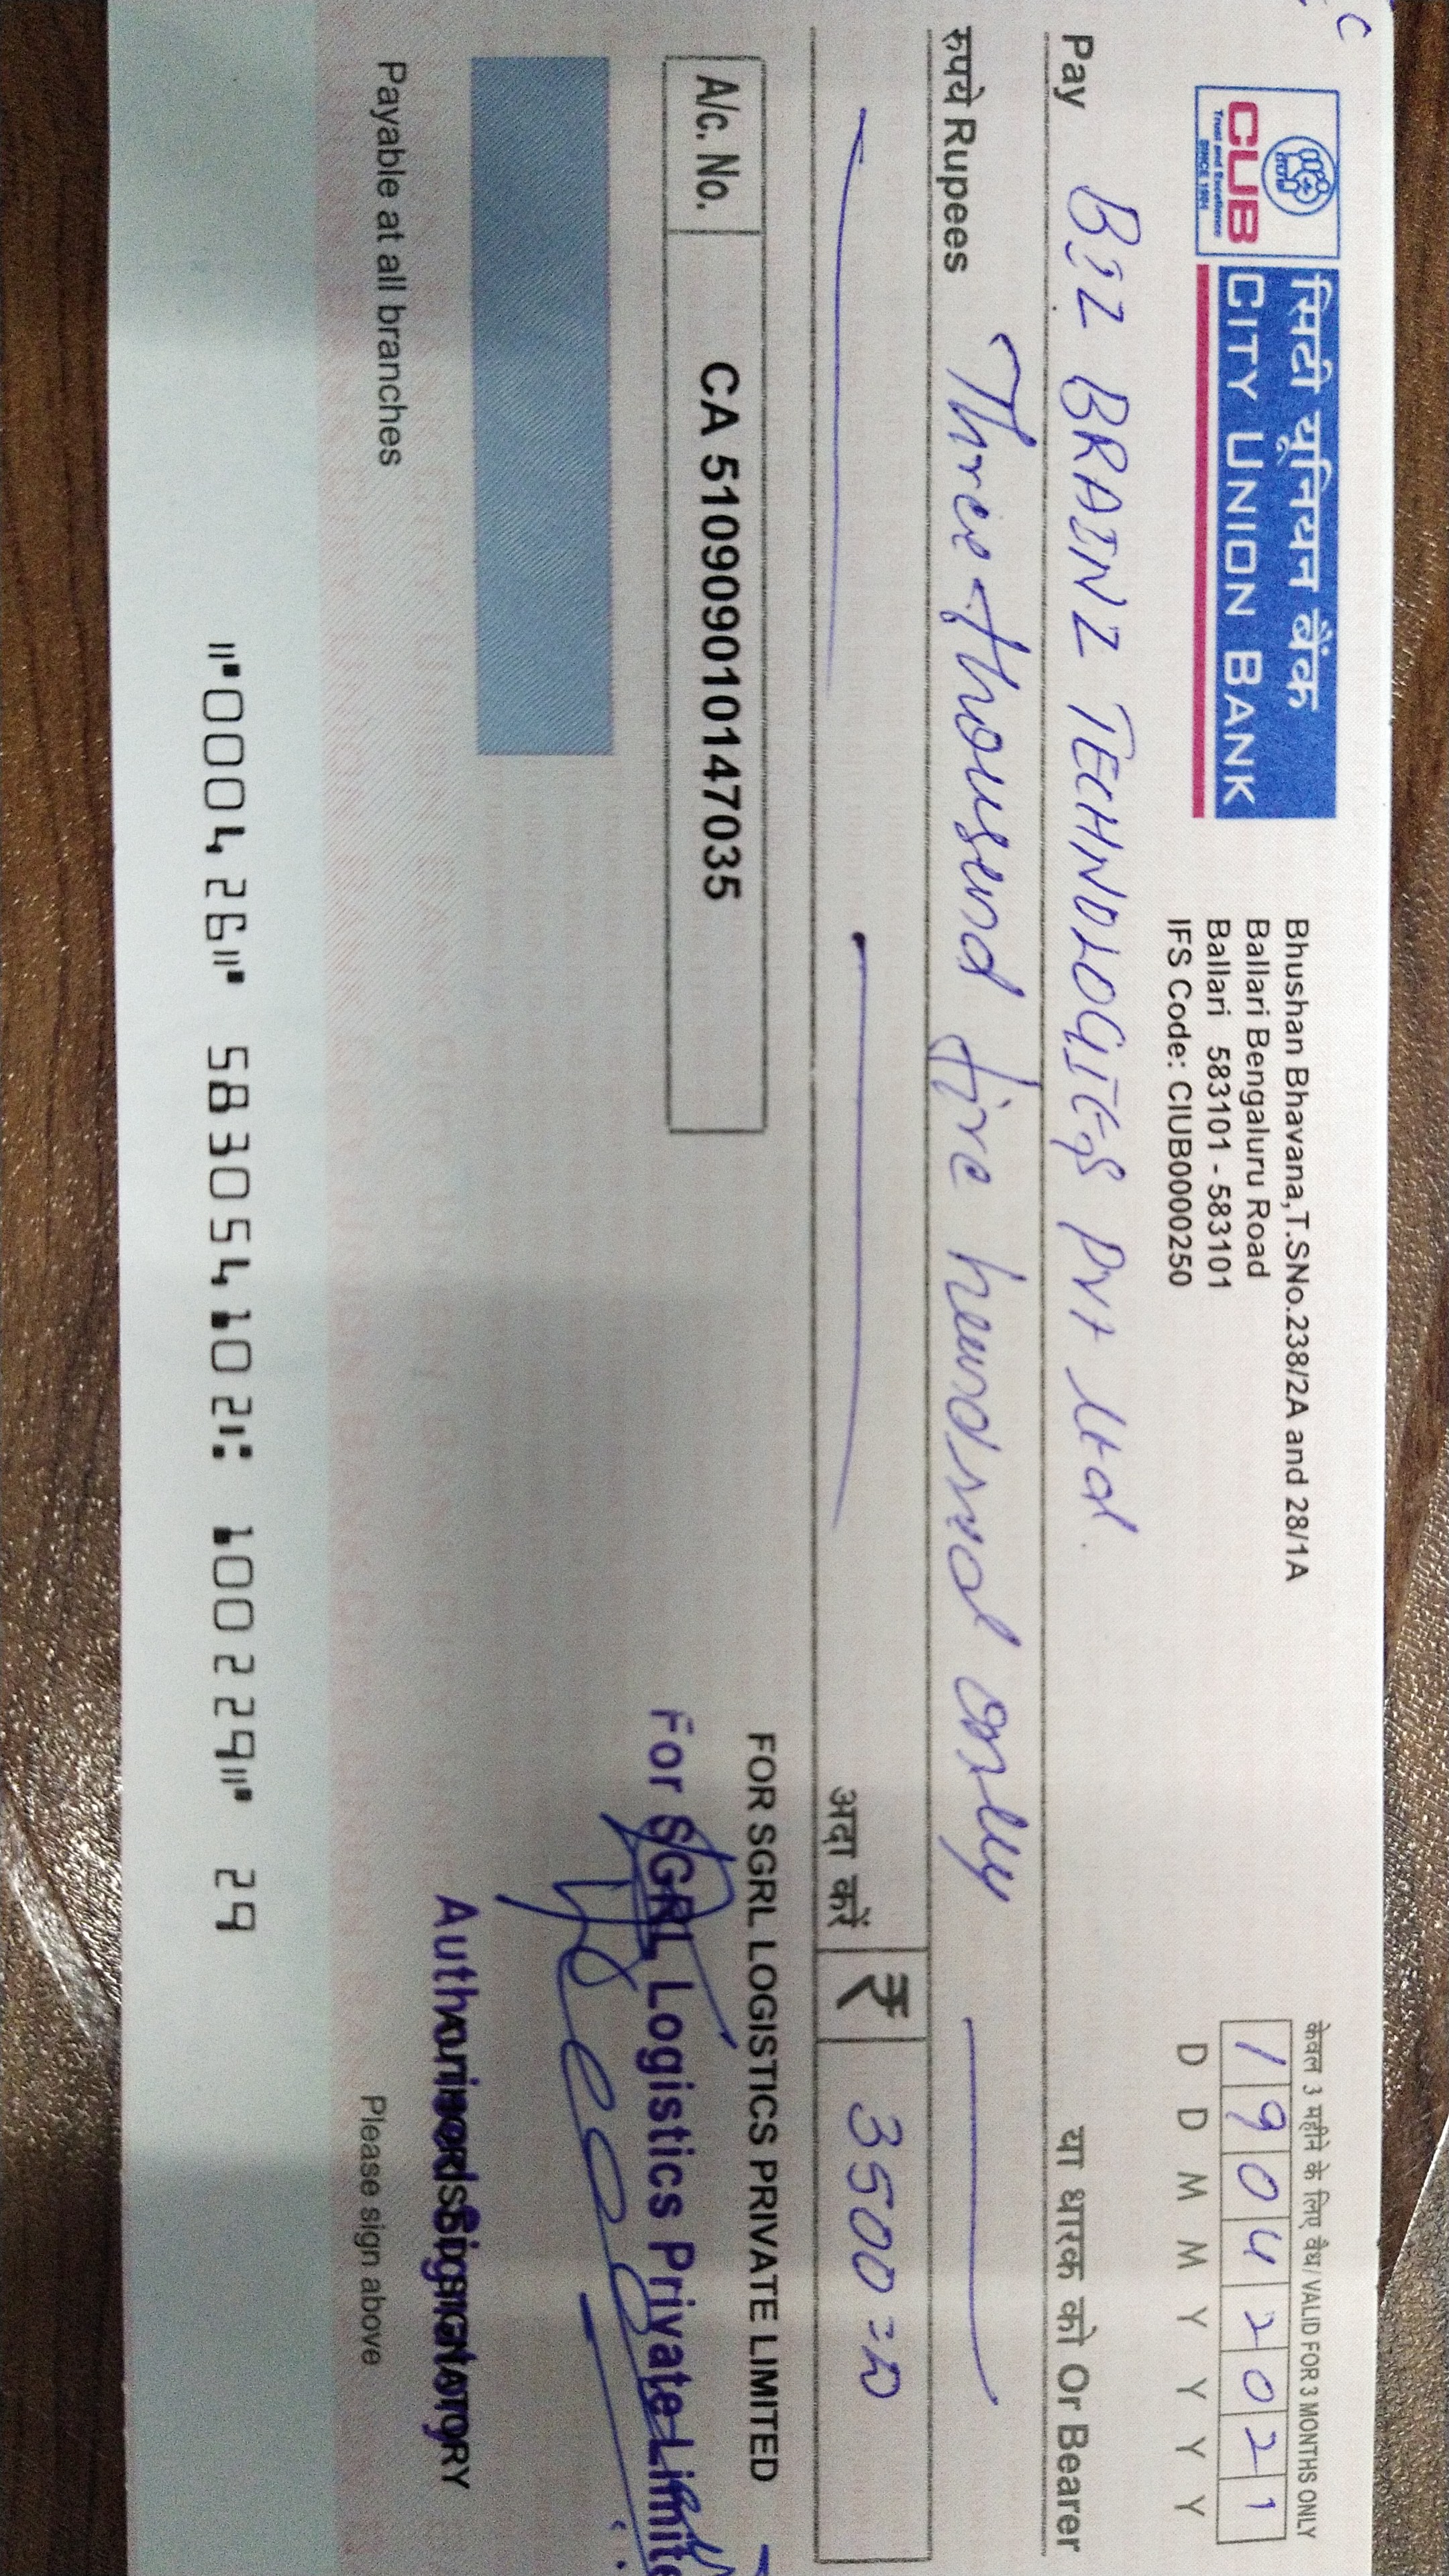 C
सिटी यूनियन बैंक
CITY UNION BANK
CUB
Trust and Excellence
SINCE 1904
Bhushan Bhavana,T.SNo.238/2A and 28/1A
Ballari Bengaluru Road
Ballari 583101 - 583101
IFS Code: CIUB0000250
केवल 3 महीने के लिए वैध/ VALID FOR 3 MONTHS ONLY
19042021
D D M M Y Y Y Y
Pay BIZ BRAINZ TECHNOLOGIES Pvt Ltd.
या धारक को Or Bearer
रुपये Rupees Three thousand five hundred only
अदा करें ₹ 3500=00
A/c. No. CA 510909010147035
FOR SGRL LOGISTICS PRIVATE LIMITED
For SGRL Logistics Private Limite
Authorised Signatory
AUTHORISED SIGNATORY
Payable at all branches
Please sign above
⑈000426⑈ 583054102⑆ 100229⑈ 29